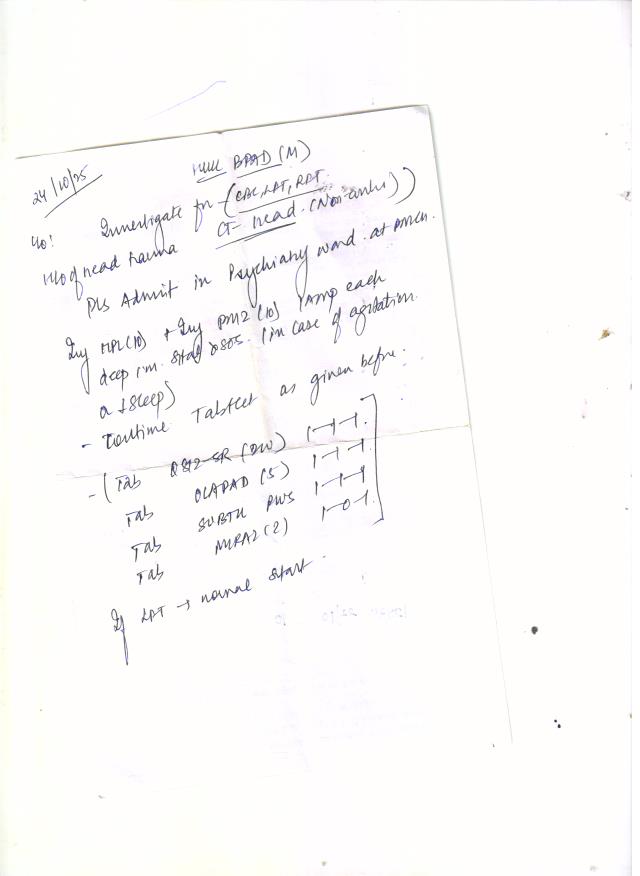 24/10/25
BPAD (M)
Investigate for - (CBC, LFT, RFT.
H/o of head trauma CT- head. (Non-contra))
Pls Admit in Psychiatry ward. at
Inj HPL (10) + Inj PMZ (10) 1 Amp each
deep i.m. stat & SOS. (in case of agitation.
& ↓ sleep)
- Continue Tablet as given before.
- ( Tab SR (200) 1-1-1.
Tab OLAPAD (5) 1-1-1
Tab PLUS 1-1-1
Tab (2) 1-0-1.
If LFT → normal start.